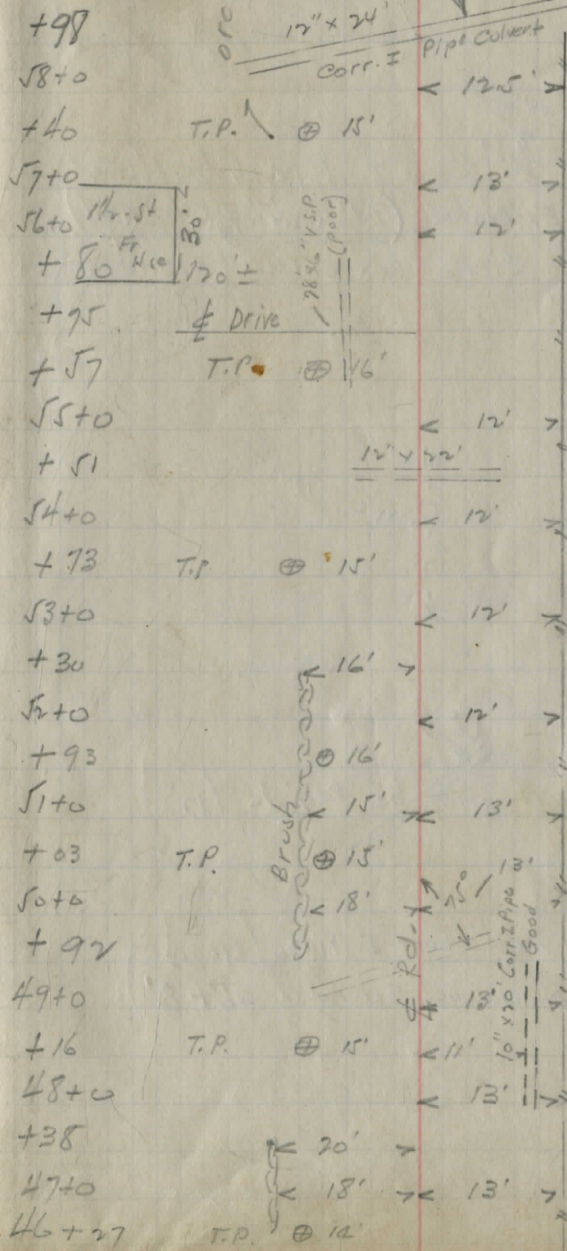 +98 12" x 24'
Corr. I Pipe Culvert
58+0 12.5'
+40 T.P. 15'
57+0 13'
56+0 1½-St 30' 12'
+80 Fr 120'±
28x6" V.S.P. (poor)
+75 ₵ Drive
+57 T.P. 16'
55+0 12'
+51 12" x 22'
54+0 12'
+73 T.P. 15'
53+0 12'
+30 16'
52+0 12'
+93 16'
51+0 15' 13'
Brush
+03 T.P. 15'
50+0 18'
+92
₵ Rd.
10" x 20' Corr. I Pipe
Good
49+0 13'
+16 T.P. 15' 11'
48+0 13'
+38 20'
47+0 18' 13'
46+27 T.P.